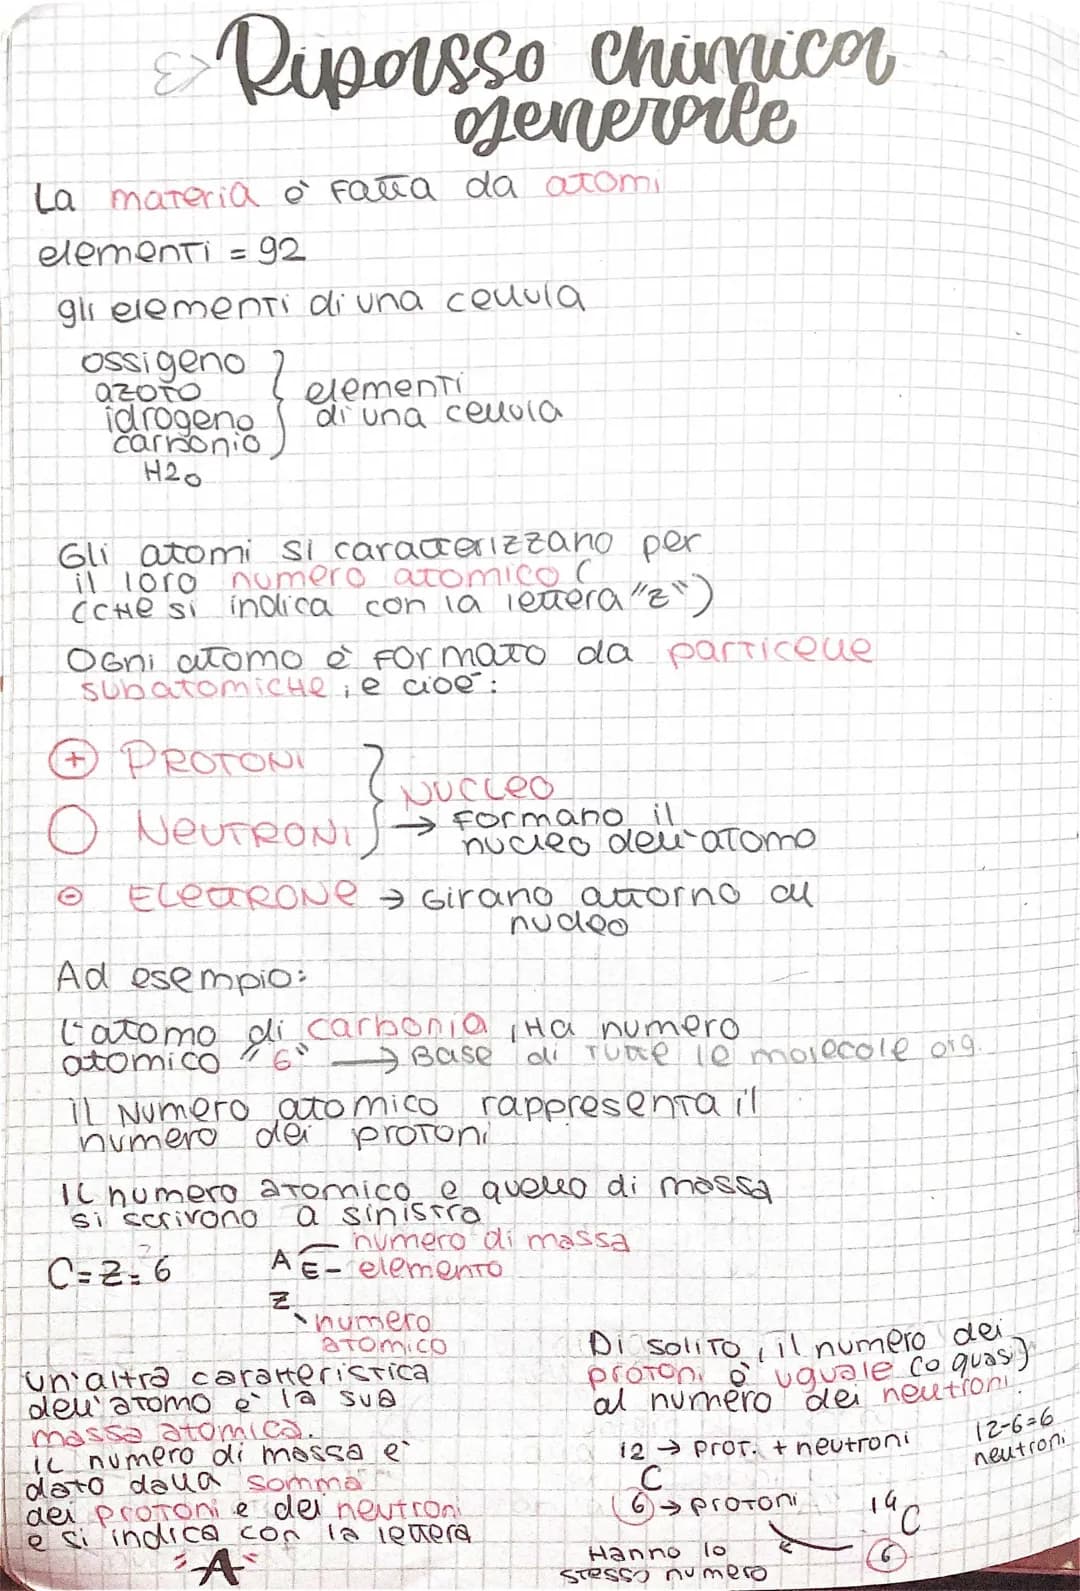 Ripasso chimica
generale
La materia è fatta da atomi
elementi = 92
gli elementi di una cellula
ossigeno
azoto
idrogeno
carbonio
elementi
di una cellula
H2O
Gli atomi si caratterizzano per
il loro numero atomico (
(che si indica con la lettera "Z")
Ogni atomo è formato da particelle
subatomiche, e cioè:
+ PROTONI
NEUTRONI
NUCLEO
→ formano il
nucleo dell'atomo
- ELETTRONE → Girano attorno al
nucleo
Ad esempio:
L'atomo di carbonia, ha numero
atomico "6" → Base di tutte le molecole org.
il Numero atomico rappresenta il
numero dei protoni
Il numero atomico e quello di massa
si scrivono a sinistra
C=Z=6
A numero di massa
E - elemento
Z numero
atomico
un'altra caratteristica
dell'atomo è la sua
massa atomica.
il numero di massa è
dato dalla somma
dei protoni e dei neutroni
e si indica con la lettera
"A"
Di solito, il numero dei
protoni è uguale (o quasi)
al numero dei neutroni.
12 → prot. + neutroni
C
6 → protoni
12-6=6
neutroni
14
C
6
Hanno lo
stesso numero